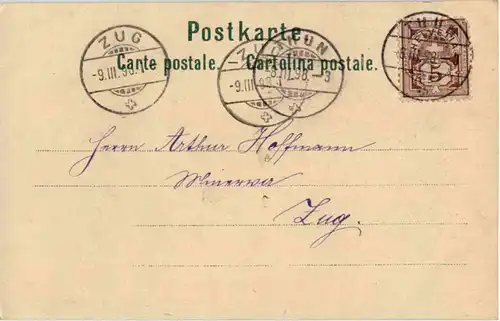 Postkarte.
Carte postale. – Cartolina postale.
ZUG
-9.III.98.
ZUG
-9.III.98.
THUN
8.III.98.
5
Herrn Arthur Hoffmann
Minerva
Zug.